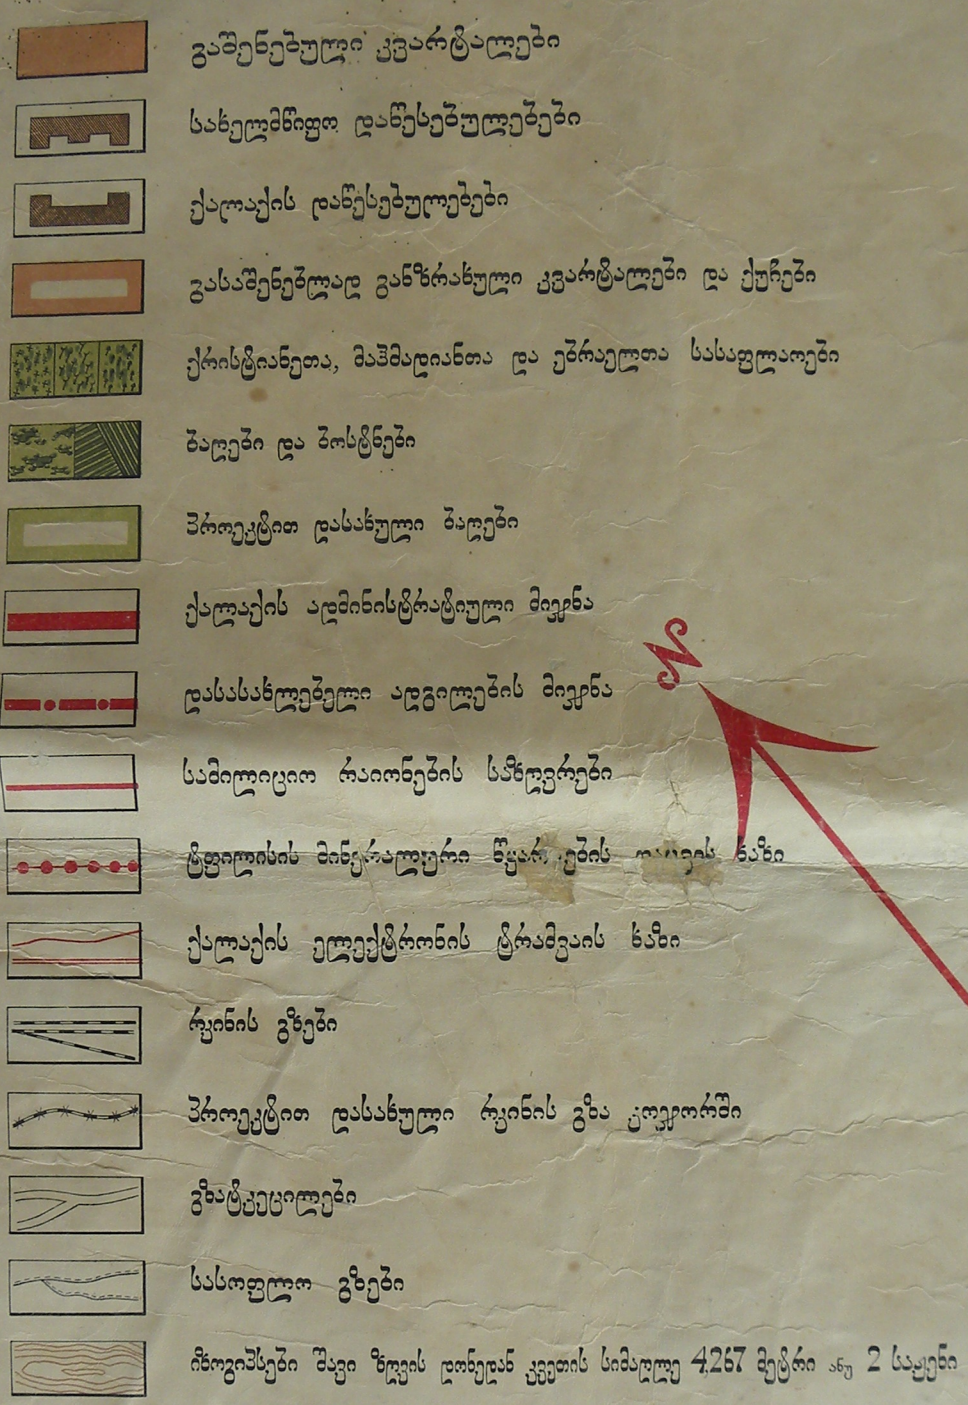 გაშენებული კვარტალები
სახელმწიფო დაწესებულებები
ქალაქის დაწესებულებები
გასაშენებლად განზრახული კვარტალები და ქუჩები
ქრისტიანეთა, მაჰმადიანთა და ებრაელთა სასაფლაოები
ბაღები და ბოსტნები
პროექტით დასახული ბაღები
ქალაქის ადმინისტრატიული მიჯნა
N
დასასახლებელი ადგილების მიჯნა
სამილიციო რაიონების საზღვრები
ტფილისის მინერალური ხაზი
ქალაქის ელექტრონის ტრამვაის ხაზი
რკინის გზები
პროექტით დასახული რკინის გზა კოჯორში
გზატკეცილები
სასოფლო გზები
იზოგიპსები შავი ზღვის დონედან კვეთის სიმაღლე 4,267 მეტრი ანუ 2 საჟენი